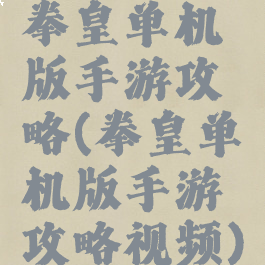 拳皇单机
版手游攻
略(拳皇单
机版手游
攻略视频)